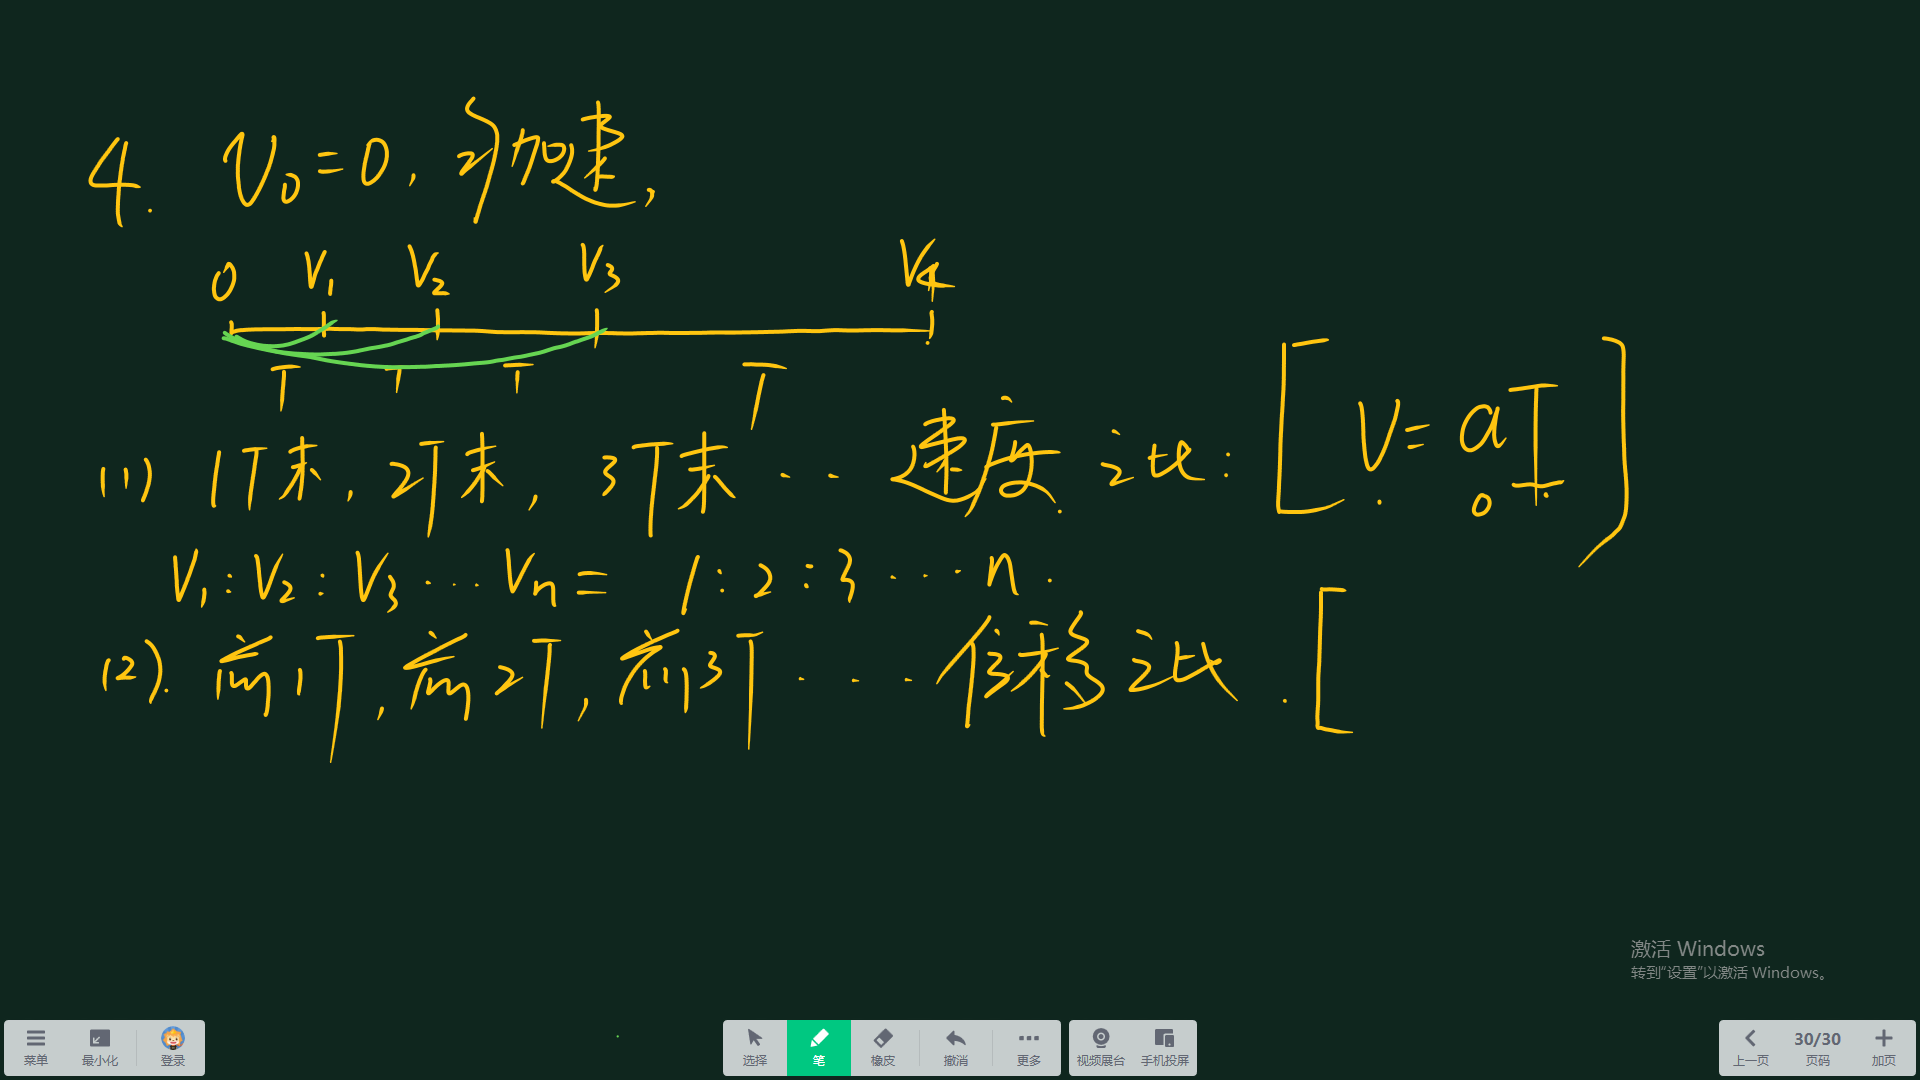 4. V₀=0, 匀加速,
0 V₁ V₂ V₃ V₄
T T T T
(1) 1T末, 2T末, 3T末 ‥ 速度之比: [V=aT]
V₁:V₂:V₃…Vn= 1:2:3…n.
(2). 前1T, 前2T, 前3T … 位移之比. [
激活 Windows
转到“设置”以激活 Windows。
菜单 最小化 登录 选择 笔 橡皮 撤消 更多 视频展台 手机投屏 上一页 30/30 页码 加页